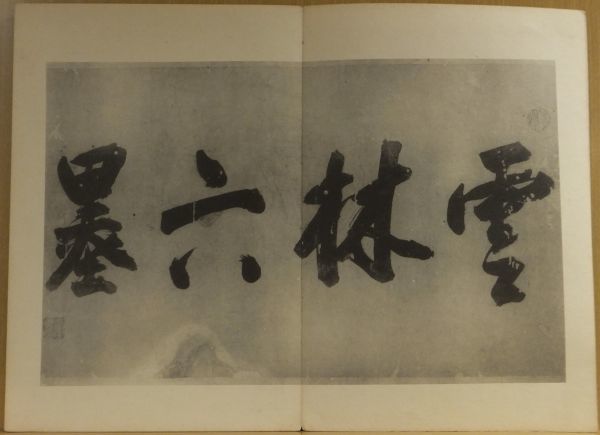 雲林六墨